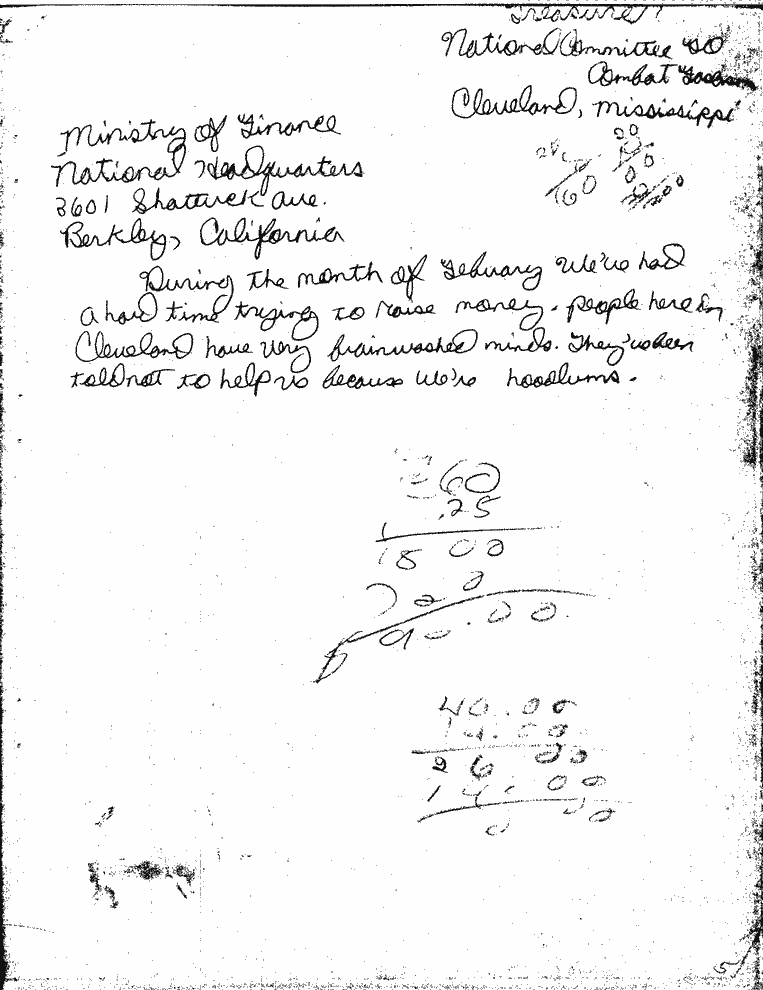 Treasurer
National Committee to
Combat Facism
Cleveland, Mississippi
Ministry of Finance
National Headquarters
3601 Shattuck Ave.
Berkley, California
20
60
00
During the month of Febuary We've had
a hard time trying to raise money. people here in
Cleveland have very brainwashed minds. They've been
told not to help us because We're hoodlums.
60
.25
1500
40.00
14.00
26 00
14.00
5